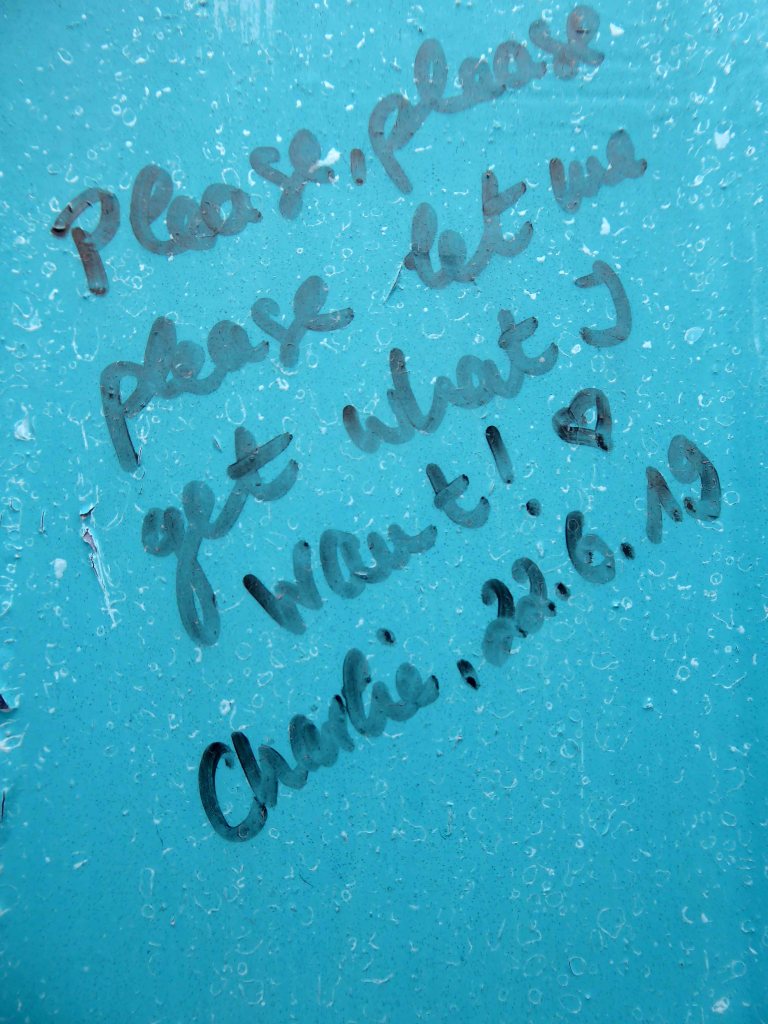 Please, please
please let me
get what I
want! ♡
Charlie, 22.6.19